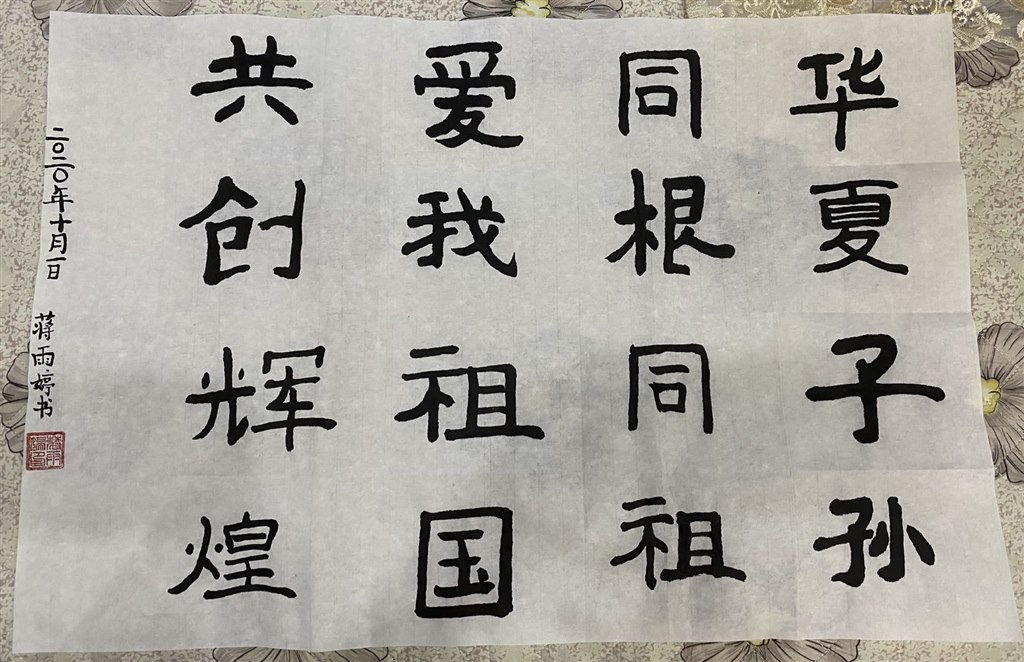 华夏子孙
同根同祖
爱我祖国
共创辉煌
二〇二〇年十月一日 蒋雨婷书